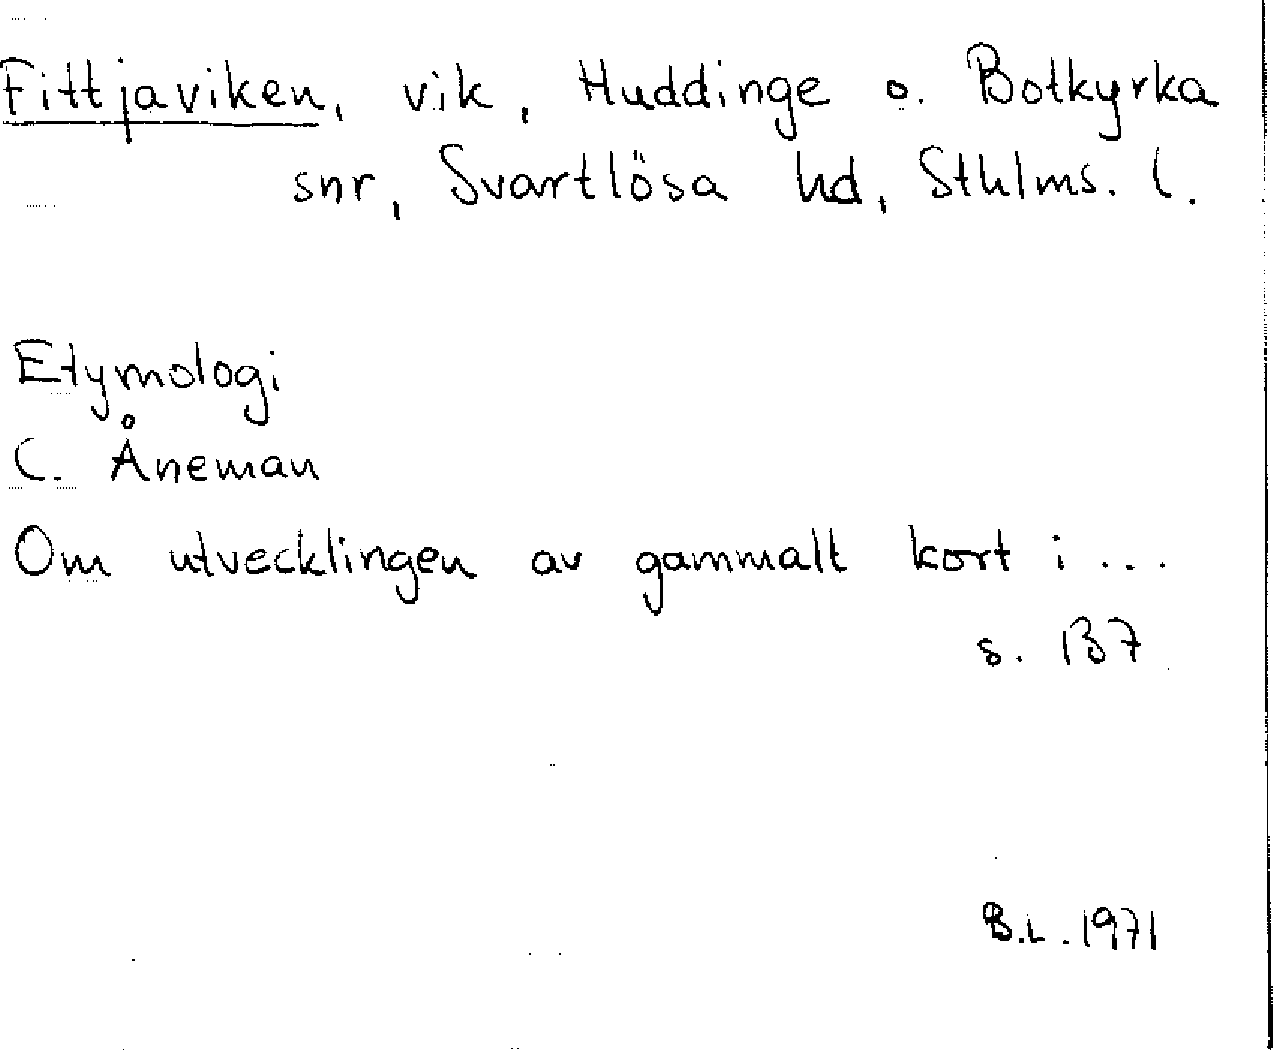 Fittjaviken, vik, Huddinge o. Botkyrka
snr, Svartlösa hd, Sthlms. l.
Etymologi
C. Åneman
Om utvecklingen av gammalt kort i ...
s. 137
B.L. 1971